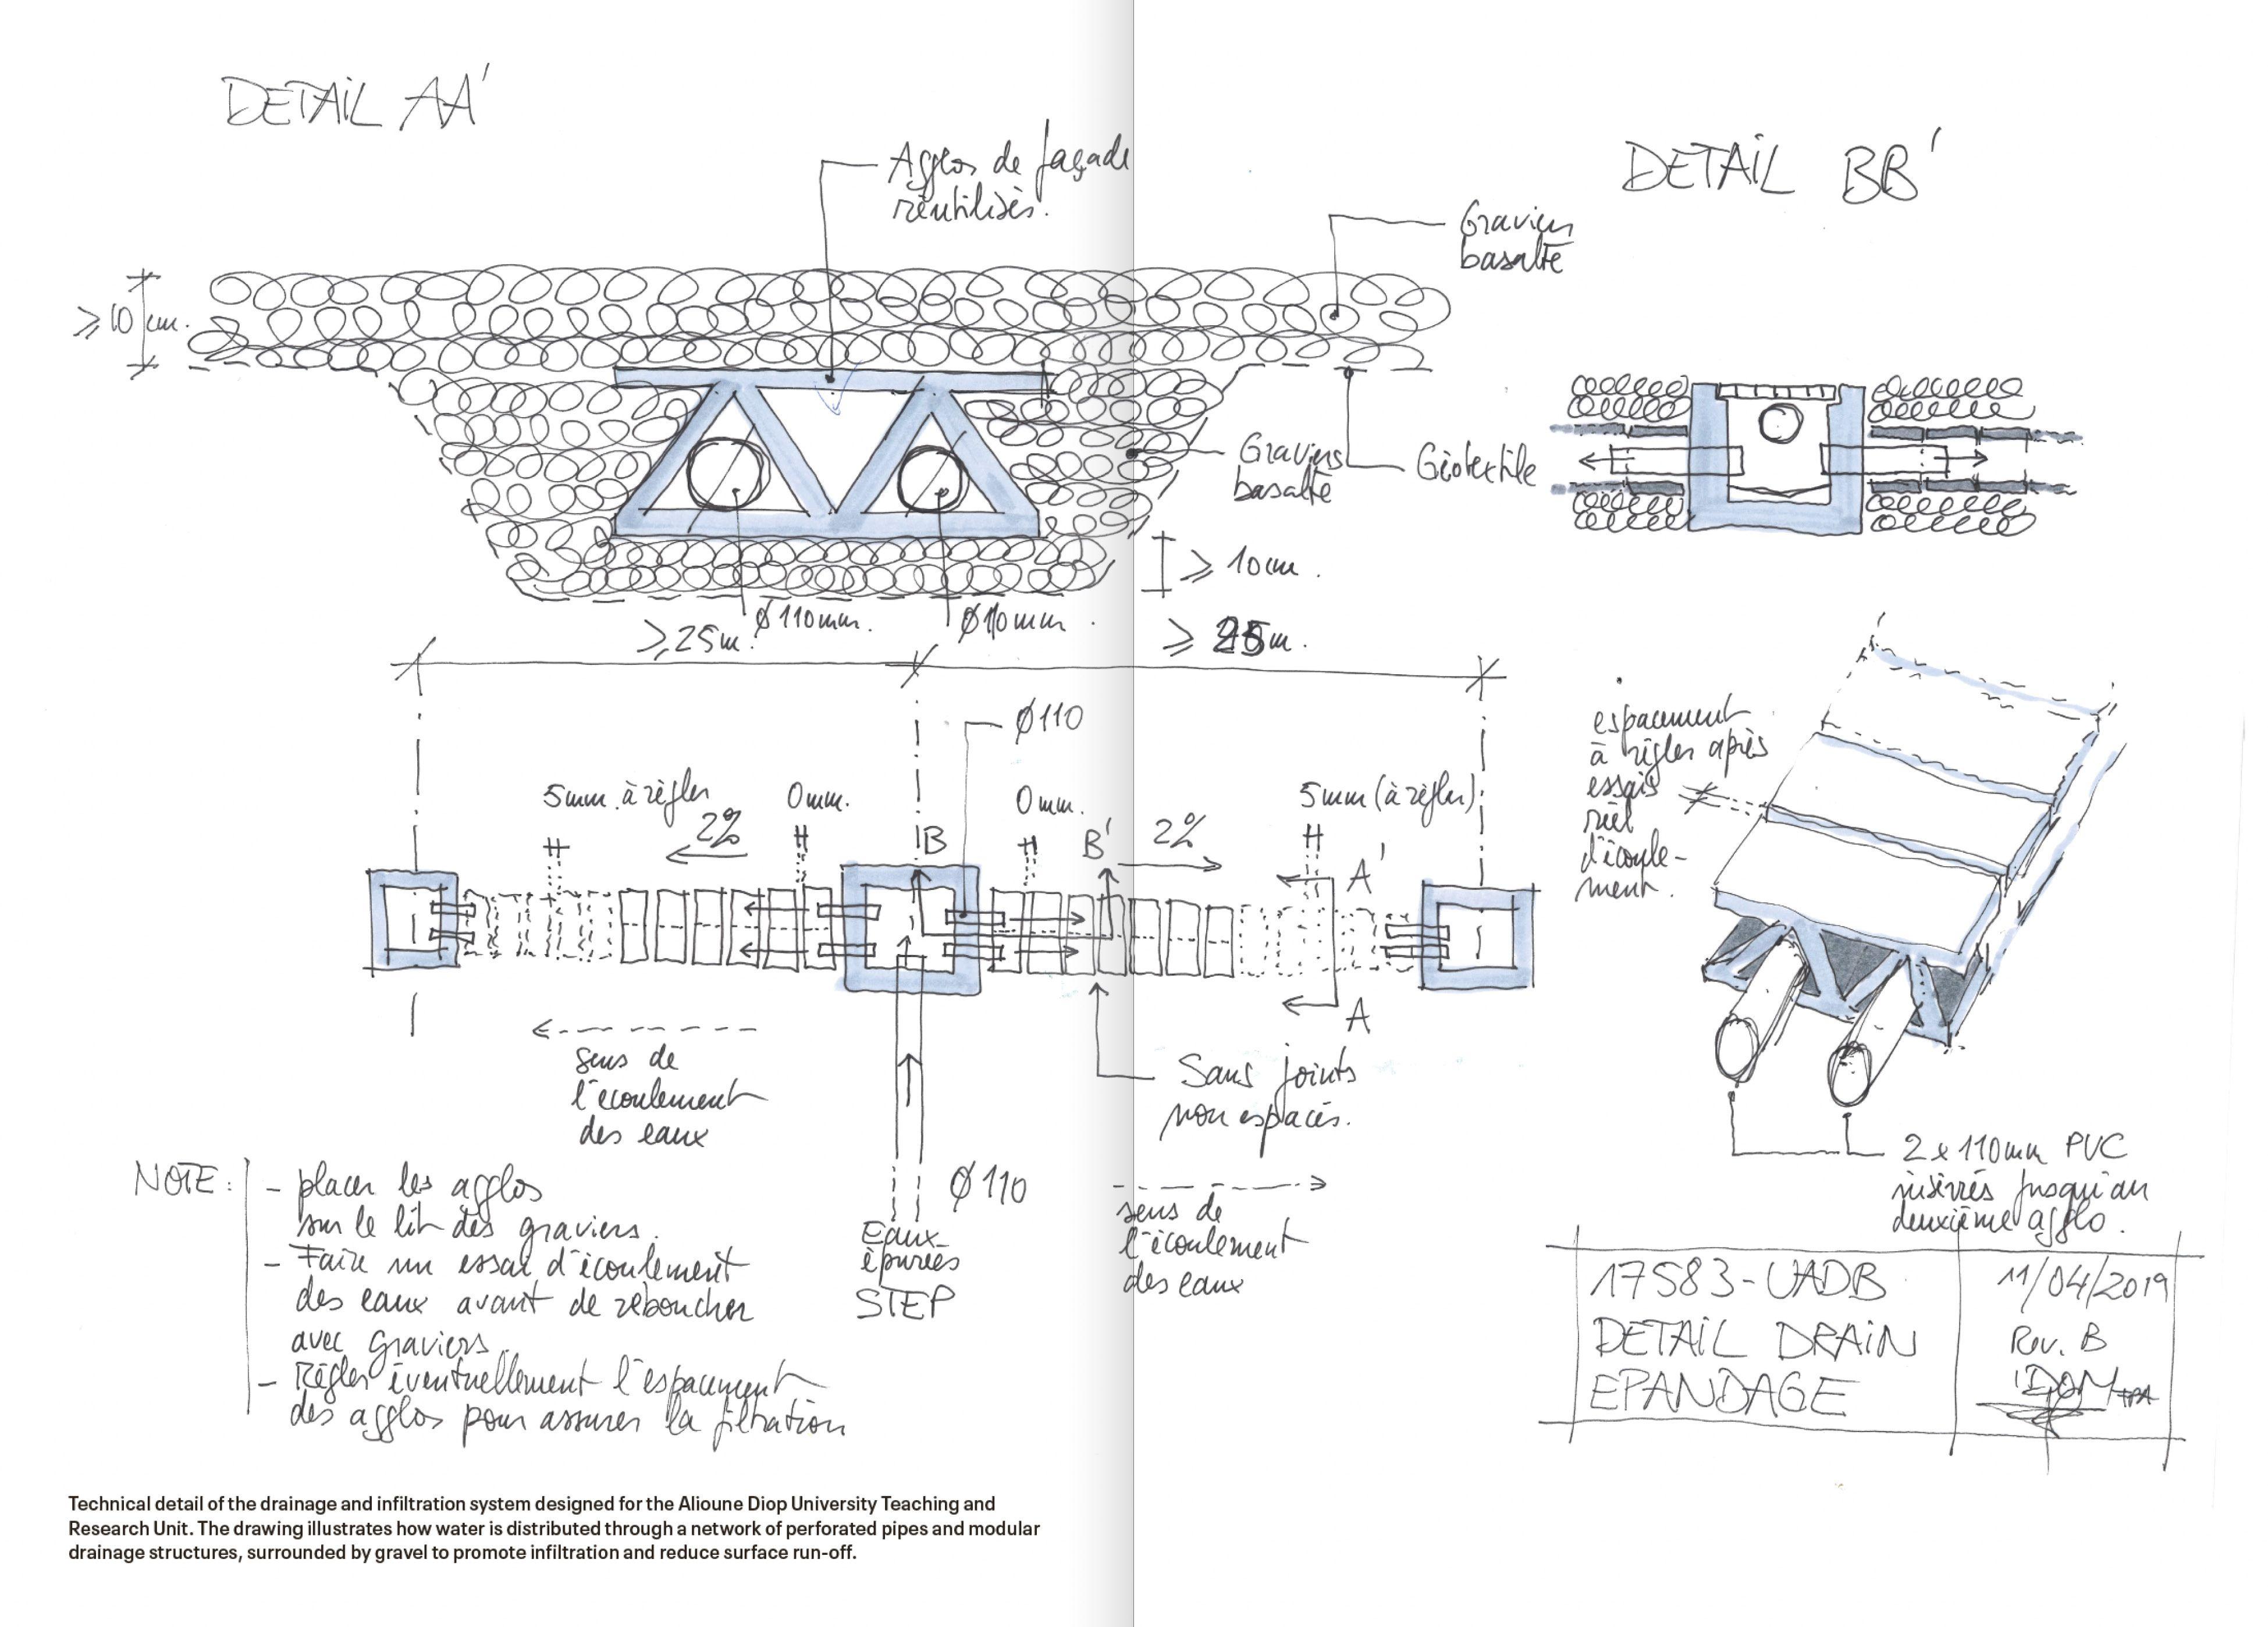 DETAIL AA'
Agglos de façade
réutilisés.
DETAIL BB'
Graviers
basalte
≥ 10 cm.
Graviers
basalte
Géotextile
≥ 10cm.
Ø110mm.
Ø110mm.
≥25m.
≥ 25m.
Ø110
5mm à régler
0mm.
0mm.
5mm (à régler)
2%
B
B'
2%
A'
A
espacement
à régler après
essais
réel
d'écoule-
ment.
sens de
l'écoulement
des eaux
Sans joints
non espacés.
2 x 110mm PVC
insérés jusqu'au
deuxième agglo.
NOTE:
- placer les agglos
sur le lit des graviers.
- Faire un essai d'écoulement
des eaux avant de reboucher
avec graviers.
- Régler éventuellement l'espacement
des agglos pour assurer la filtration
Ø110
Eaux
épurées
STEP
sens de
l'écoulement
des eaux
17583-UADB
DETAIL DRAIN
EPANDAGE
11/04/2019
Rev. B
Technical detail of the drainage and infiltration system designed for the Alioune Diop University Teaching and
Research Unit. The drawing illustrates how water is distributed through a network of perforated pipes and modular
drainage structures, surrounded by gravel to promote infiltration and reduce surface run-off.